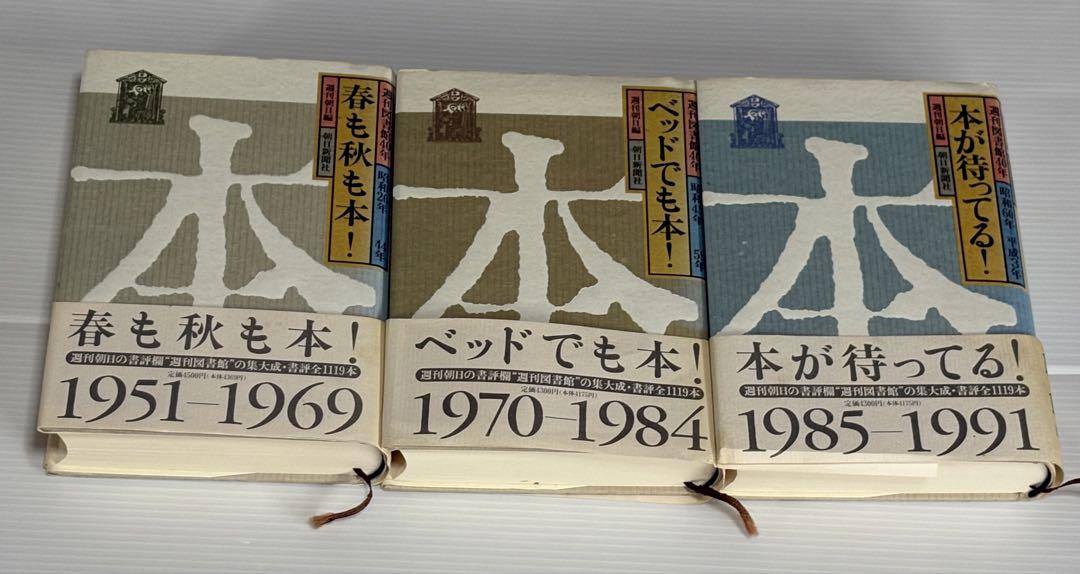 本
週刊図書館40年 昭和26年 44年
春も秋も本!
週刊朝日編
朝日新聞社
春も秋も本!
週刊朝日の書評欄"週刊図書館"の集大成・書評全1119本
定価4500円(本体4369円)
1951—1969
本
週刊図書館40年
ベッドでも本!
週刊朝日編
朝日新聞社
ベッドでも本!
週刊朝日の書評欄"週刊図書館"の集大成・書評全1119本
定価4300円(本体4175円)
1970—1984
本
週刊図書館40年 昭和60年 平成3年
本が待ってる!
週刊朝日編
朝日新聞社
本が待ってる!
週刊朝日の書評欄"週刊図書館"の集大成・書評全1119本
定価4300円(本体4175円)
1985—1991